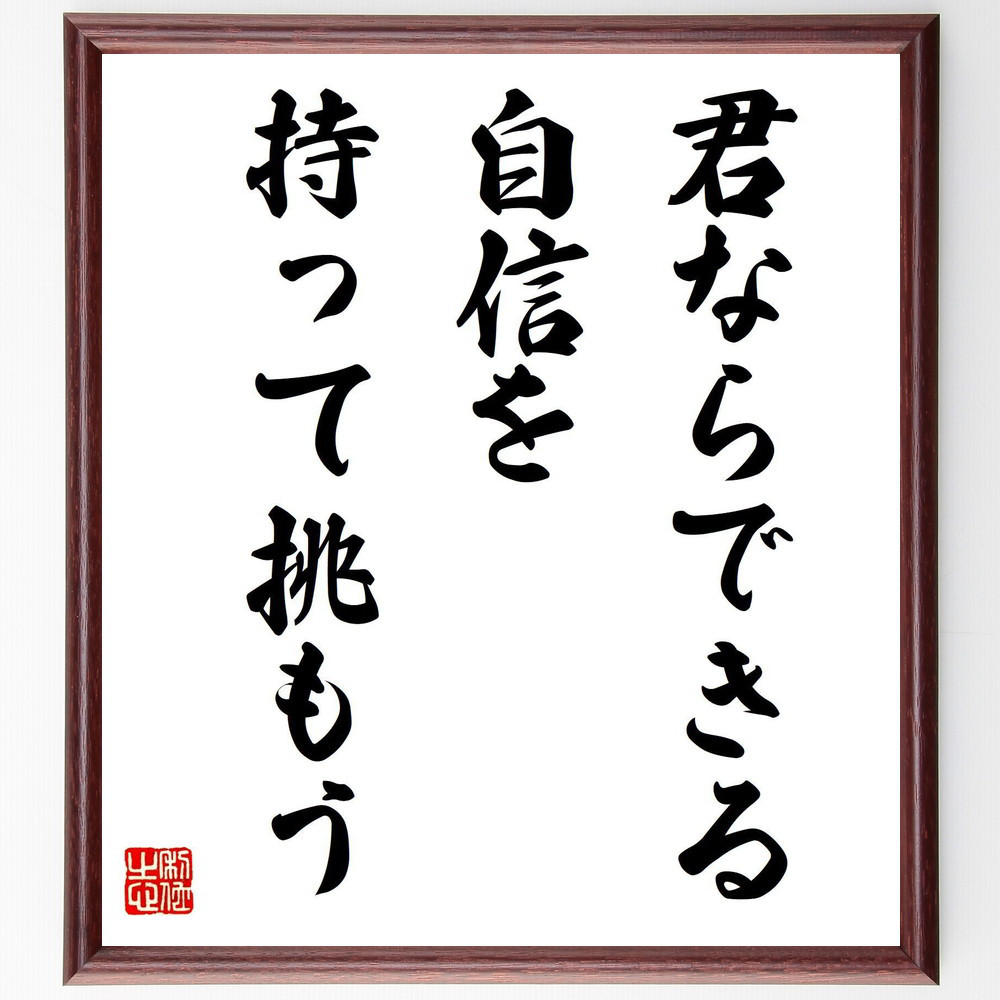 君ならできる
自信を
持って挑もう